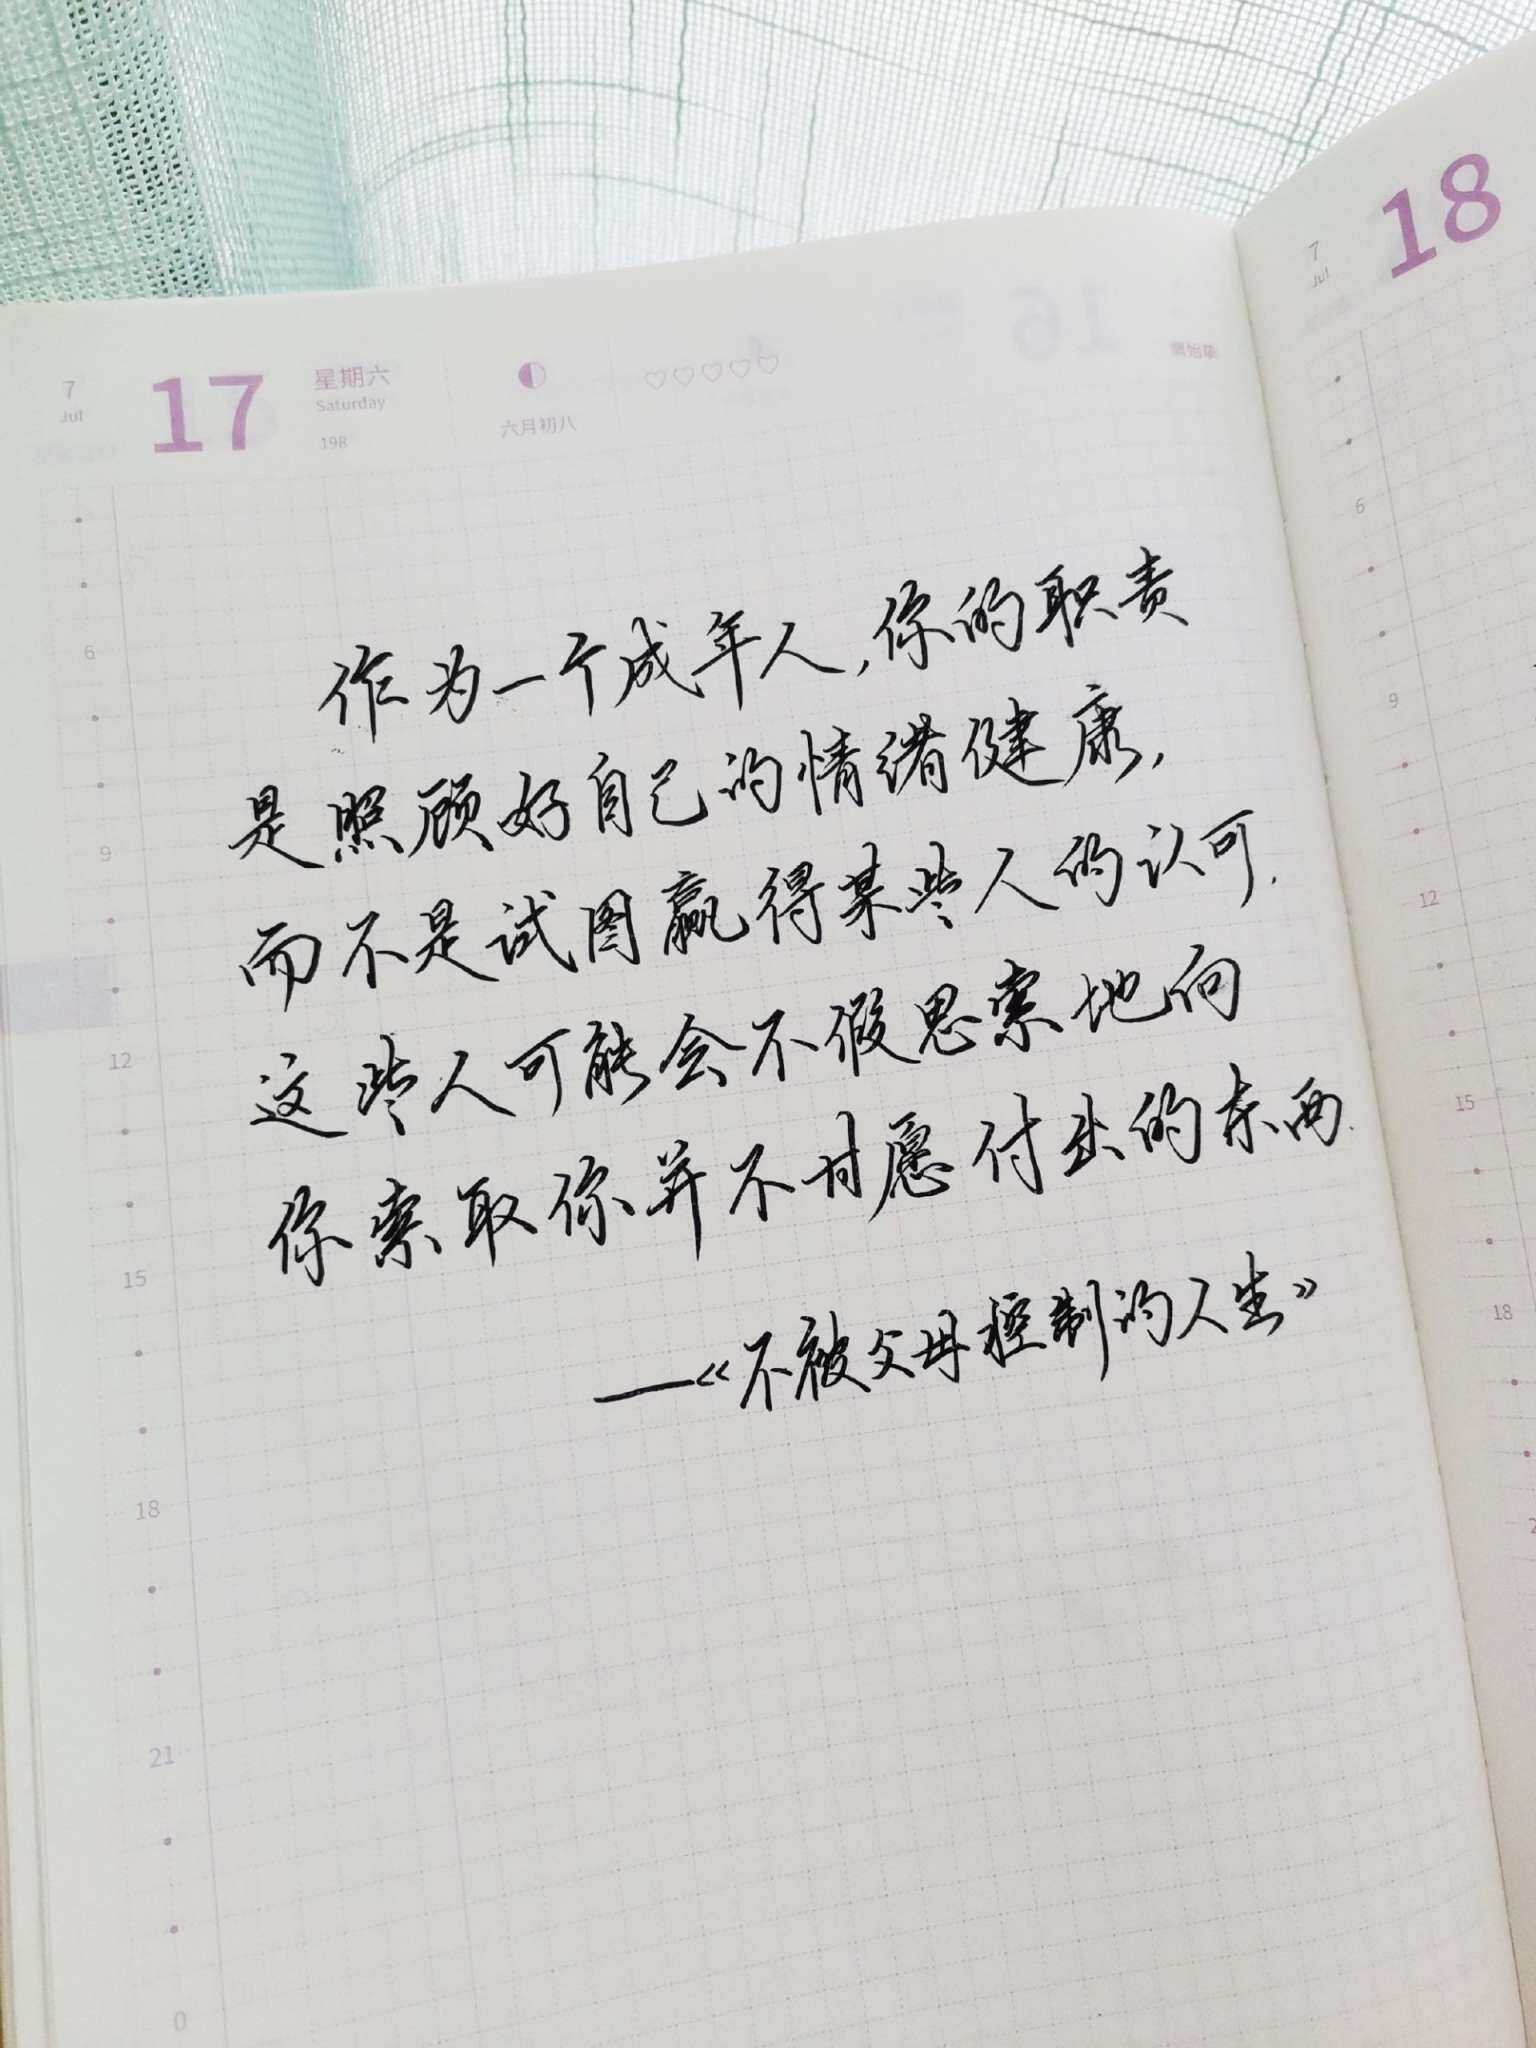 7
Jul
17
星期六
Saturday
198
六月初八
7
Jul
18
作为一个成年人,你的职责
是照顾好自己的情绪健康,
而不是试图赢得某些人的认可.
这些人可能会不假思索地向
你索取你并不甘愿付出的东西.
——《不被父母控制的人生》
6
9
12
15
18
21
0
6
9
12
15
18